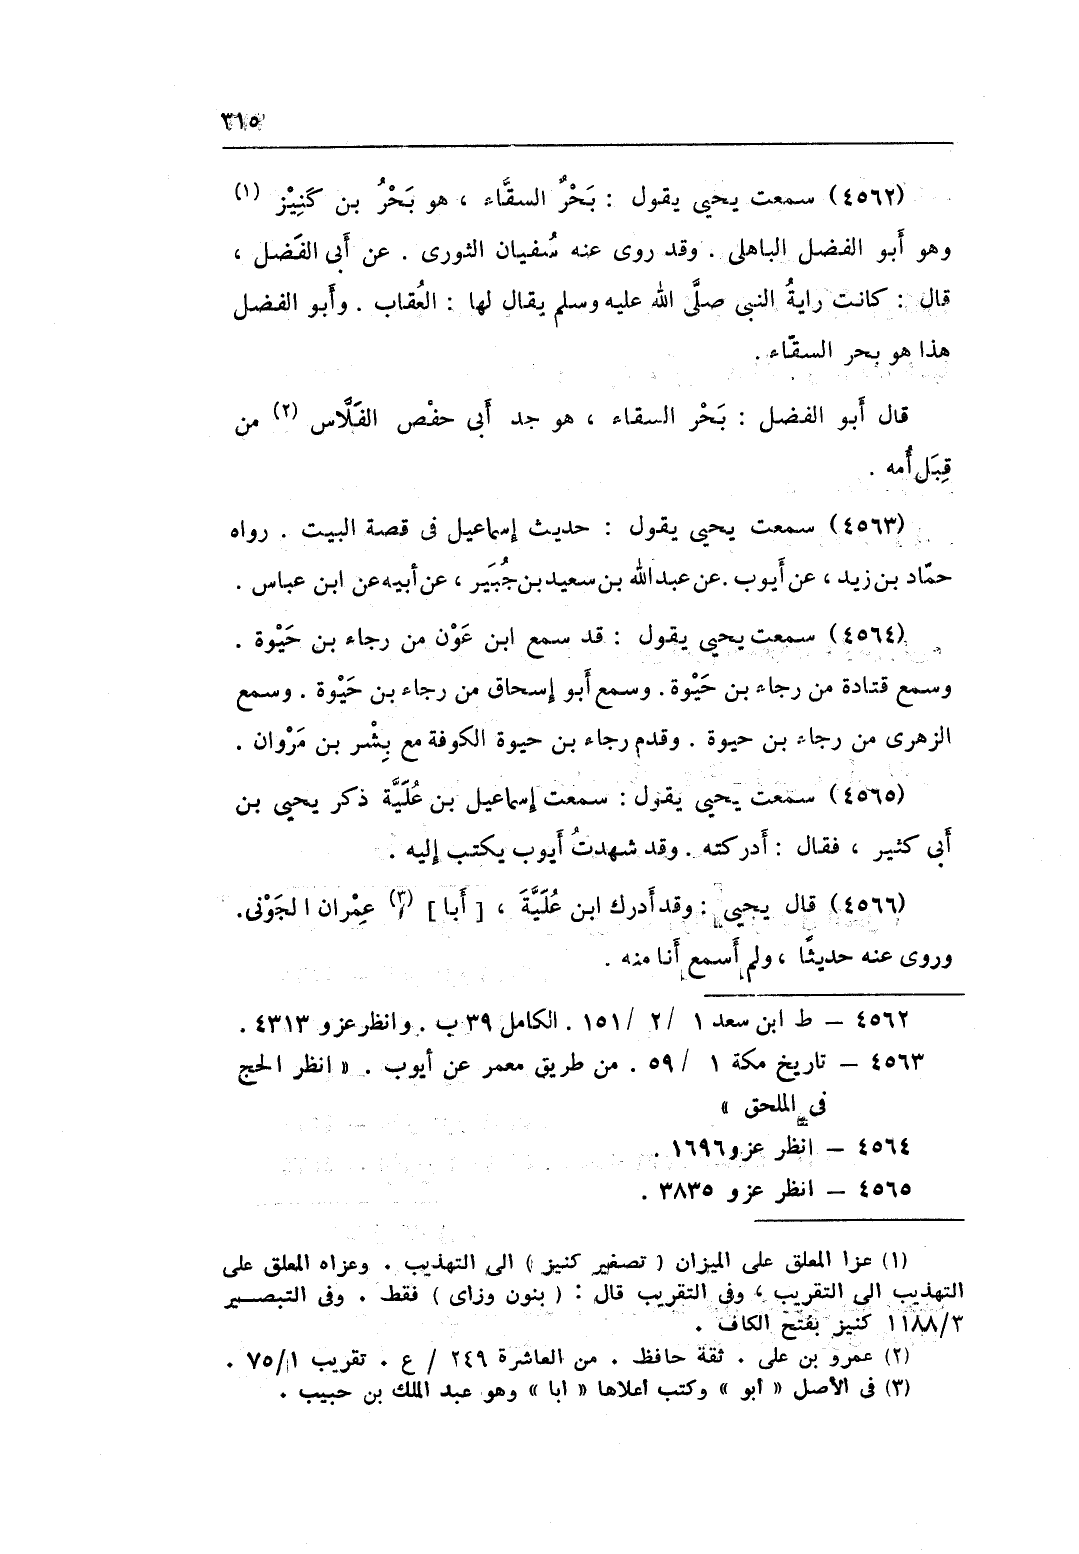 ٣١٥
(٤٥٦٢) سمعت يحيى يقول : بَحْرٌ السقَّاء ، هو بَحْرُ بن كَنِيْز (١)
وهو أَبو الفضل الباهلى . وقد روى عنه سُفيان الثورى . عن أَبى الفَضل ،
قال : كانت رايةُ النبى صلَّى الله عليه وسلم يقال لها : العُقاب . وأَبو الفضل
هذا هو بحر السقّاء .
قال أَبو الفضل : بَحْر السقاء ، هو جد أَبى حفْص الفَلَّاس (٢) من
قِبَل أُمه .
(٤٥٦٣) سمعت يحيى يقول : حديث إسماعيل فى قصة البيت . رواه
حمّاد بن زيد ، عن أَيوب . عن عبد الله بن سعيد بن جُبَير ، عن أبيه عن ابن عباس .
(٤٥٦٤) سمعت يحيى يقول : قد سمع ابن عَوْن من رجاء بن حَيْوة .
وسمع قتادة من رجاء بن حَيْوة . وسمع أَبو إسحاق من رجاء بن حَيْوة . وسمع
الزهرى من رجاء بن حيوة . وقدم رجاء بن حيوة الكوفة مع بِشْر بن مَرْوان .
(٤٥٦٥) سمعت يحيى يقول : سمعت إسماعيل بن عُلَيَّة ذكر يحيى بن
أَبى كثير ، فقال : أَدركته . وقد شهدتُ أَيوب يكتب إليه .
(٤٥٦٦) قال يحيى : وقد أَدرك ابن عُلَيَّةَ ، [ أَبا ] (٣) عِمْران الجَوْنى.
وروى عنه حديثًا ، ولم أَسمع أَنا منه .
٤٥٦٢ – ط ابن سعد ١ / ٢ / ١٥١ . الكامل ٣٩ ب . وانظر عزو ٤٣١٣ .
٤٥٦٣ – تاريخ مكة ١ / ٥٩ . من طريق معمر عن أيوب . « انظر الحج
فى الملحق »
٤٥٦٤ – انظر عزو ١٦٩٦ .
٤٥٦٥ – انظر عزو ٣٨٣٥ .
(١) عزا المعلق على الميزان ( تصغير كنيز ) الى التهذيب . وعزاه المعلق على
التهذيب الى التقريب ، وفى التقريب قال : ( بنون وزاى ) فقط . وفى التبصير
١١٨٨/٣ كنيز بفتح الكاف .
(٢) عمرو بن على . ثقة حافظ . من العاشرة ٢٤٩ / ع . تقريب ٧٥/١ .
(٣) فى الأصل « أبو » وكتب أعلاها « ابا » وهو عبد الملك بن حبيب .